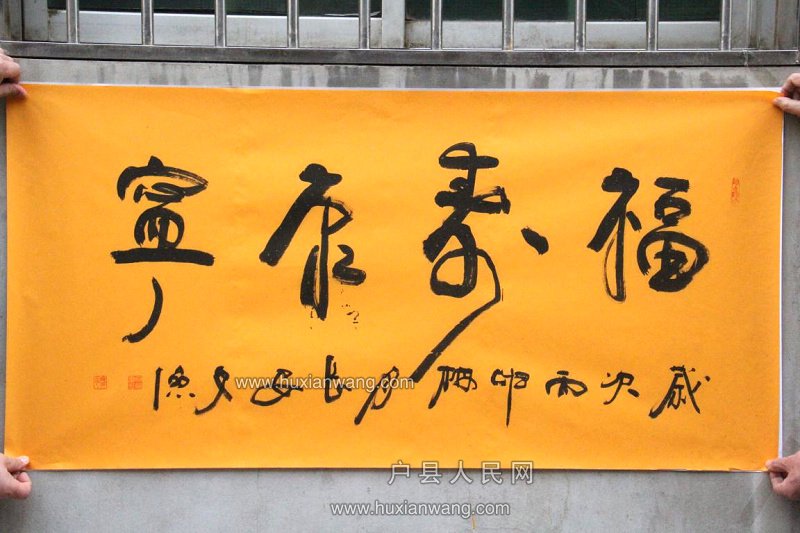 福壽康寧
歲次丙申月長安文
www.huxianwang.com
户县人民网
www.huxianwang.com